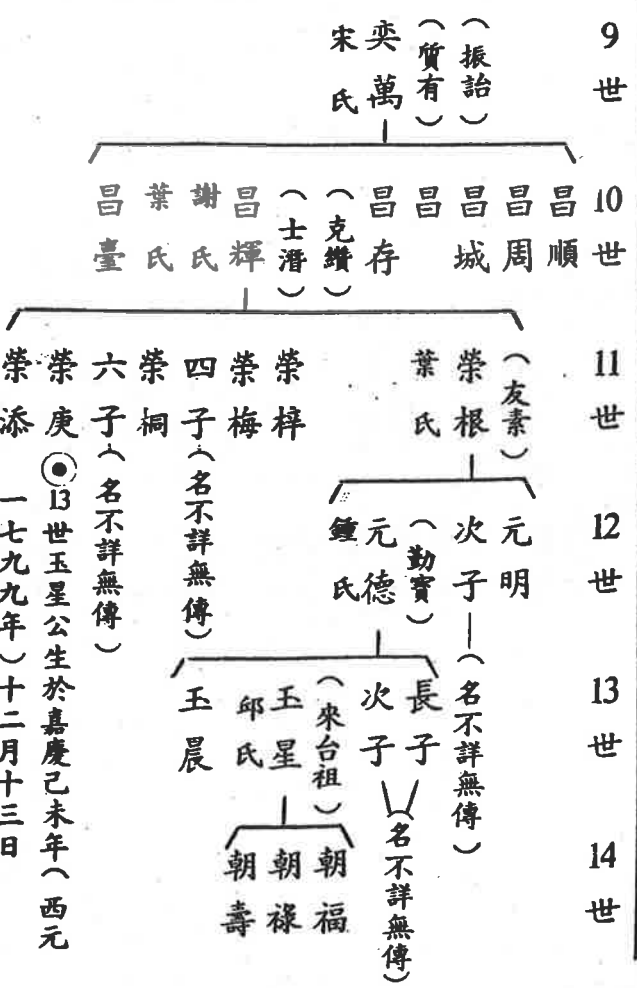 9世
(振詒)
(質有)
奕萬
宋氏
10世
昌順
昌周
昌城
昌
昌存
(克纘)
(士潛)
昌輝
謝氏
葉氏
昌臺
11世
(友素)
榮根
葉氏
榮梓
榮梅
四子(名不詳無傳)
榮桐
六子(名不詳無傳)
榮庚
榮添
12世
元明
次子—(名不詳無傳)
(勤寶)
元德
鍾氏
13世
長子
次子
(名不詳無傳)
(來台祖)
玉星
邱氏
玉晨
14世
朝福
朝祿
朝壽
⦿13世玉星公生於嘉慶己未年(西元
一七九九年)十二月十三日